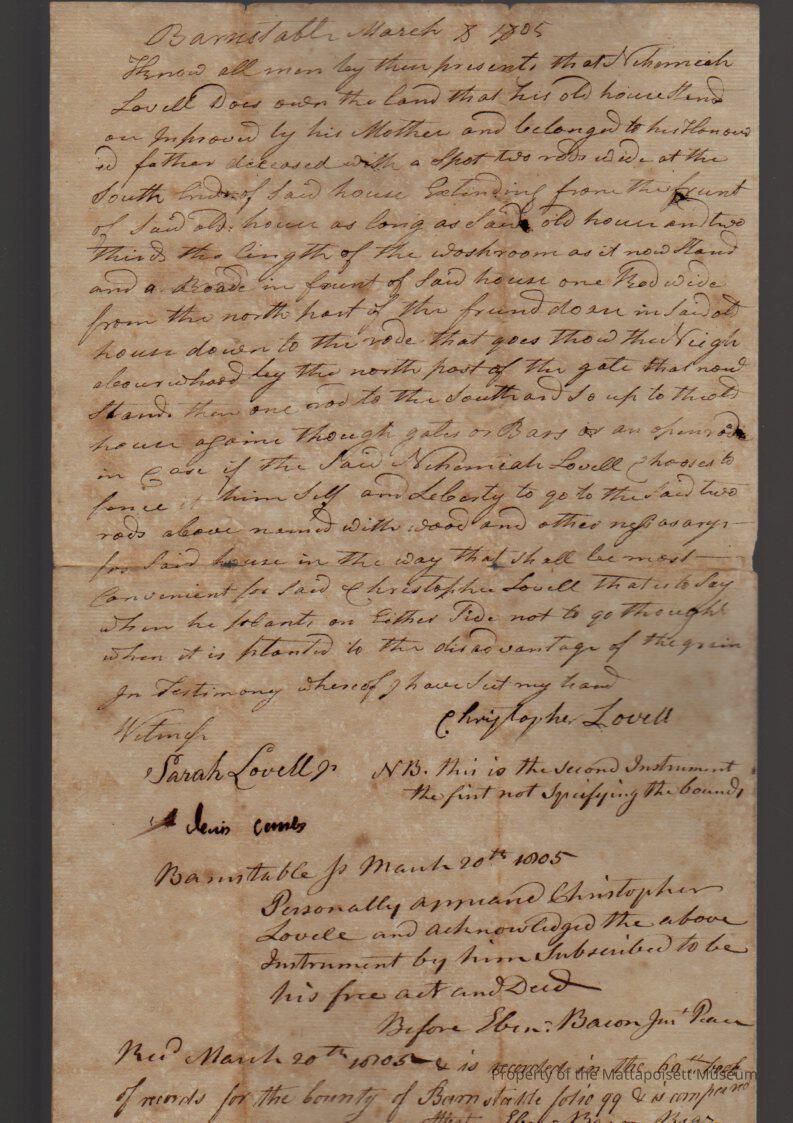 Barnstable March 8 1805
Know all men by these presents that Nehemiah
Lovell Does own the land that his old house Stand
on Improved by his Mother and belonged to his Honour
ed father deceased with a Spot two rods wide at the
South End of Said house Extending from the frunt
of Said old house as long as Said old house and two
thirds the length of the woshroom as it now Stand
and a Roade in frunt of Said house one Rod wide
from the north part of the frund dore in Said old
house down to the rode that goes thow the Neigh
abourwhood by the north part of the gate that now
Stands then one rod to the Southard So up to the old
house againe though gates or Bars or an open rode
in Case if the Said Nehemiah Lovell Chooses to
fence it him Self and Leberty to go to the Said two
rods above named with wood and other nessasarys
for Said house in the way that shall be most
Convenient for Said Christopher Lovell that is to Say
when he plants on Either Side not to go though
when it is planted to the disadvantage of the grain
In Testimony whereof I have Set my hand
Christopher Lovell
Witness
Sarah Lovell Jr
NB. this is the second Instrument
the first not Specifying the bounds
Barnstable Ss March 20th 1805
Personally appeared Christopher
Lovell and acknowledged the above
Instrument by him Subscribed to be
his free act and Deed
Before Eben: Bacon Just Peace
Recd March 20th 1805 & is recorded in the book
of records for the County of Barnstable folio 99 & is compared
Attest Eben Bacon
Property of the Mattapoisett Museum